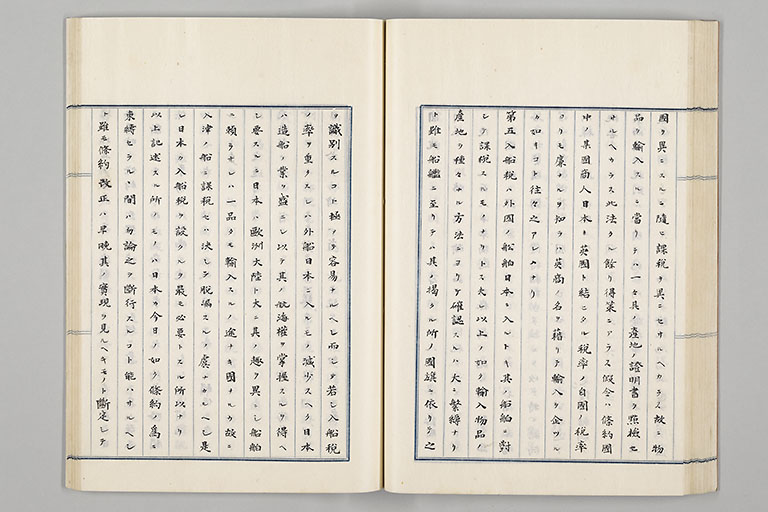 國ヲ異ニスルニ隨ヒ課税ヲ異ニセサルヘカラス故ニ物
品ヲ輸入スルニ當リテハ一々其ノ產地ノ證明書ヲ照檢セ
サルヘカラス此法タル餘リ得策ニアラス假令ハ條約國
中ノ某國商人日本ト英國ト結ニタル税率ノ自國ノ税率
ヨリモ廉ナルヲ知ラハ英商ノ名ヲ藉リテ輸入ヲ企ツル
カ如キコト往々之アレハナリ
第五入船税ハ外國ノ船舶日本ニ入ルトキ其ノ船舶ニ對
シテ課税スルモノナリトス夫レ以上ノ如ク輸入物品ノ
產地ヲ種々ナル方法ニヨリテ確認スルハ大ニ繁縟ナリ
ト雖モ船艦ニ至リテハ其ノ揭クル所ノ國旗ニ依リテ之
ヲ識別スルコト極メテ容易ナルヘシ而シテ若シ入船税
ノ率ヲ重クスレハ外船日本ニ入ルモノ減少スヘク日本
ハ造船ノ業ヲ盛ニシ以テ其ノ航海權ヲ掌握スルヲ得ヘ
シ要スルニ日本ハ歐洲大陸ト大ニ其ノ趣ヲ異ニシ船舶
ニ頼ラサレハ一品タモ輸入スルノ途ナキ國ナルカ故ニ
入津ノ船ニ課税セハ決シテ脫漏スルノ虞ナカルヘシ是
レ日本カ入船税ヲ設クルヲ最モ必要トスル所以ナリ
以上記述スル所ノモノハ日本カ今日ノ如ク條約ノ爲ニ
束縛セラルヽ間ハ勿論之ヲ斷行スルコト能ハサルヘシ
ト雖モ條約改正ハ早晚其ノ實現ヲ見ルヘキモノト斷定シテ